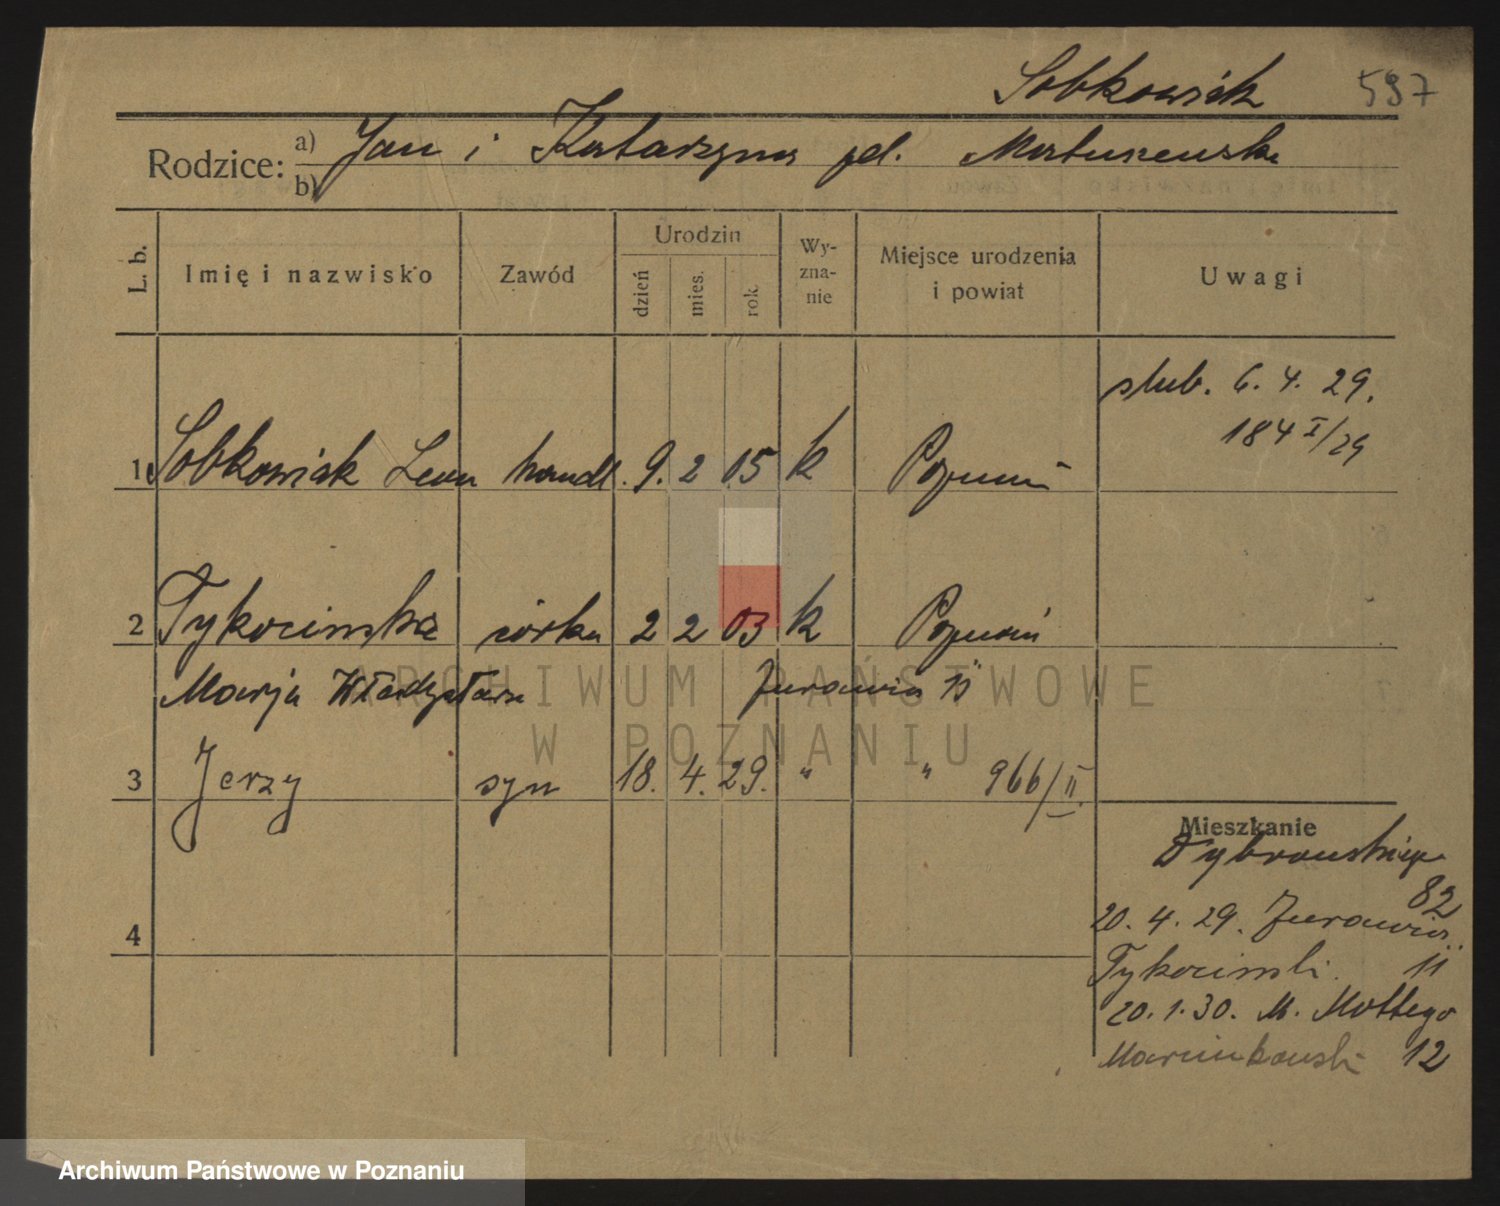 Sobkowiak 597
Rodzice: a) Jan i Katarzyna
b)
L. b. Imię i nazwisko Zawód Urodzin dzień mies. rok Wyznanie Miejsce urodzenia i powiat Uwagi
ślub. 6. 4. 29.
184 I/29
1 Sobkowiak Leon handl. 9. 2 05 k Poznań
2 Tykocinska córka 2 2 03 k Poznań
Marja Władysława Żurawia 11
3 Jerzy syn 18. 4. 29. " " 966/II.
Mieszkanie
82
4
20. 4. 29. Żurawia 11
Tykocinski
20. 1. 30. M. Mottego 12
Marcinkowski
ARCHIWUM PAŃSTWOWE
W POZNANIU
Archiwum Państwowe w Poznaniu